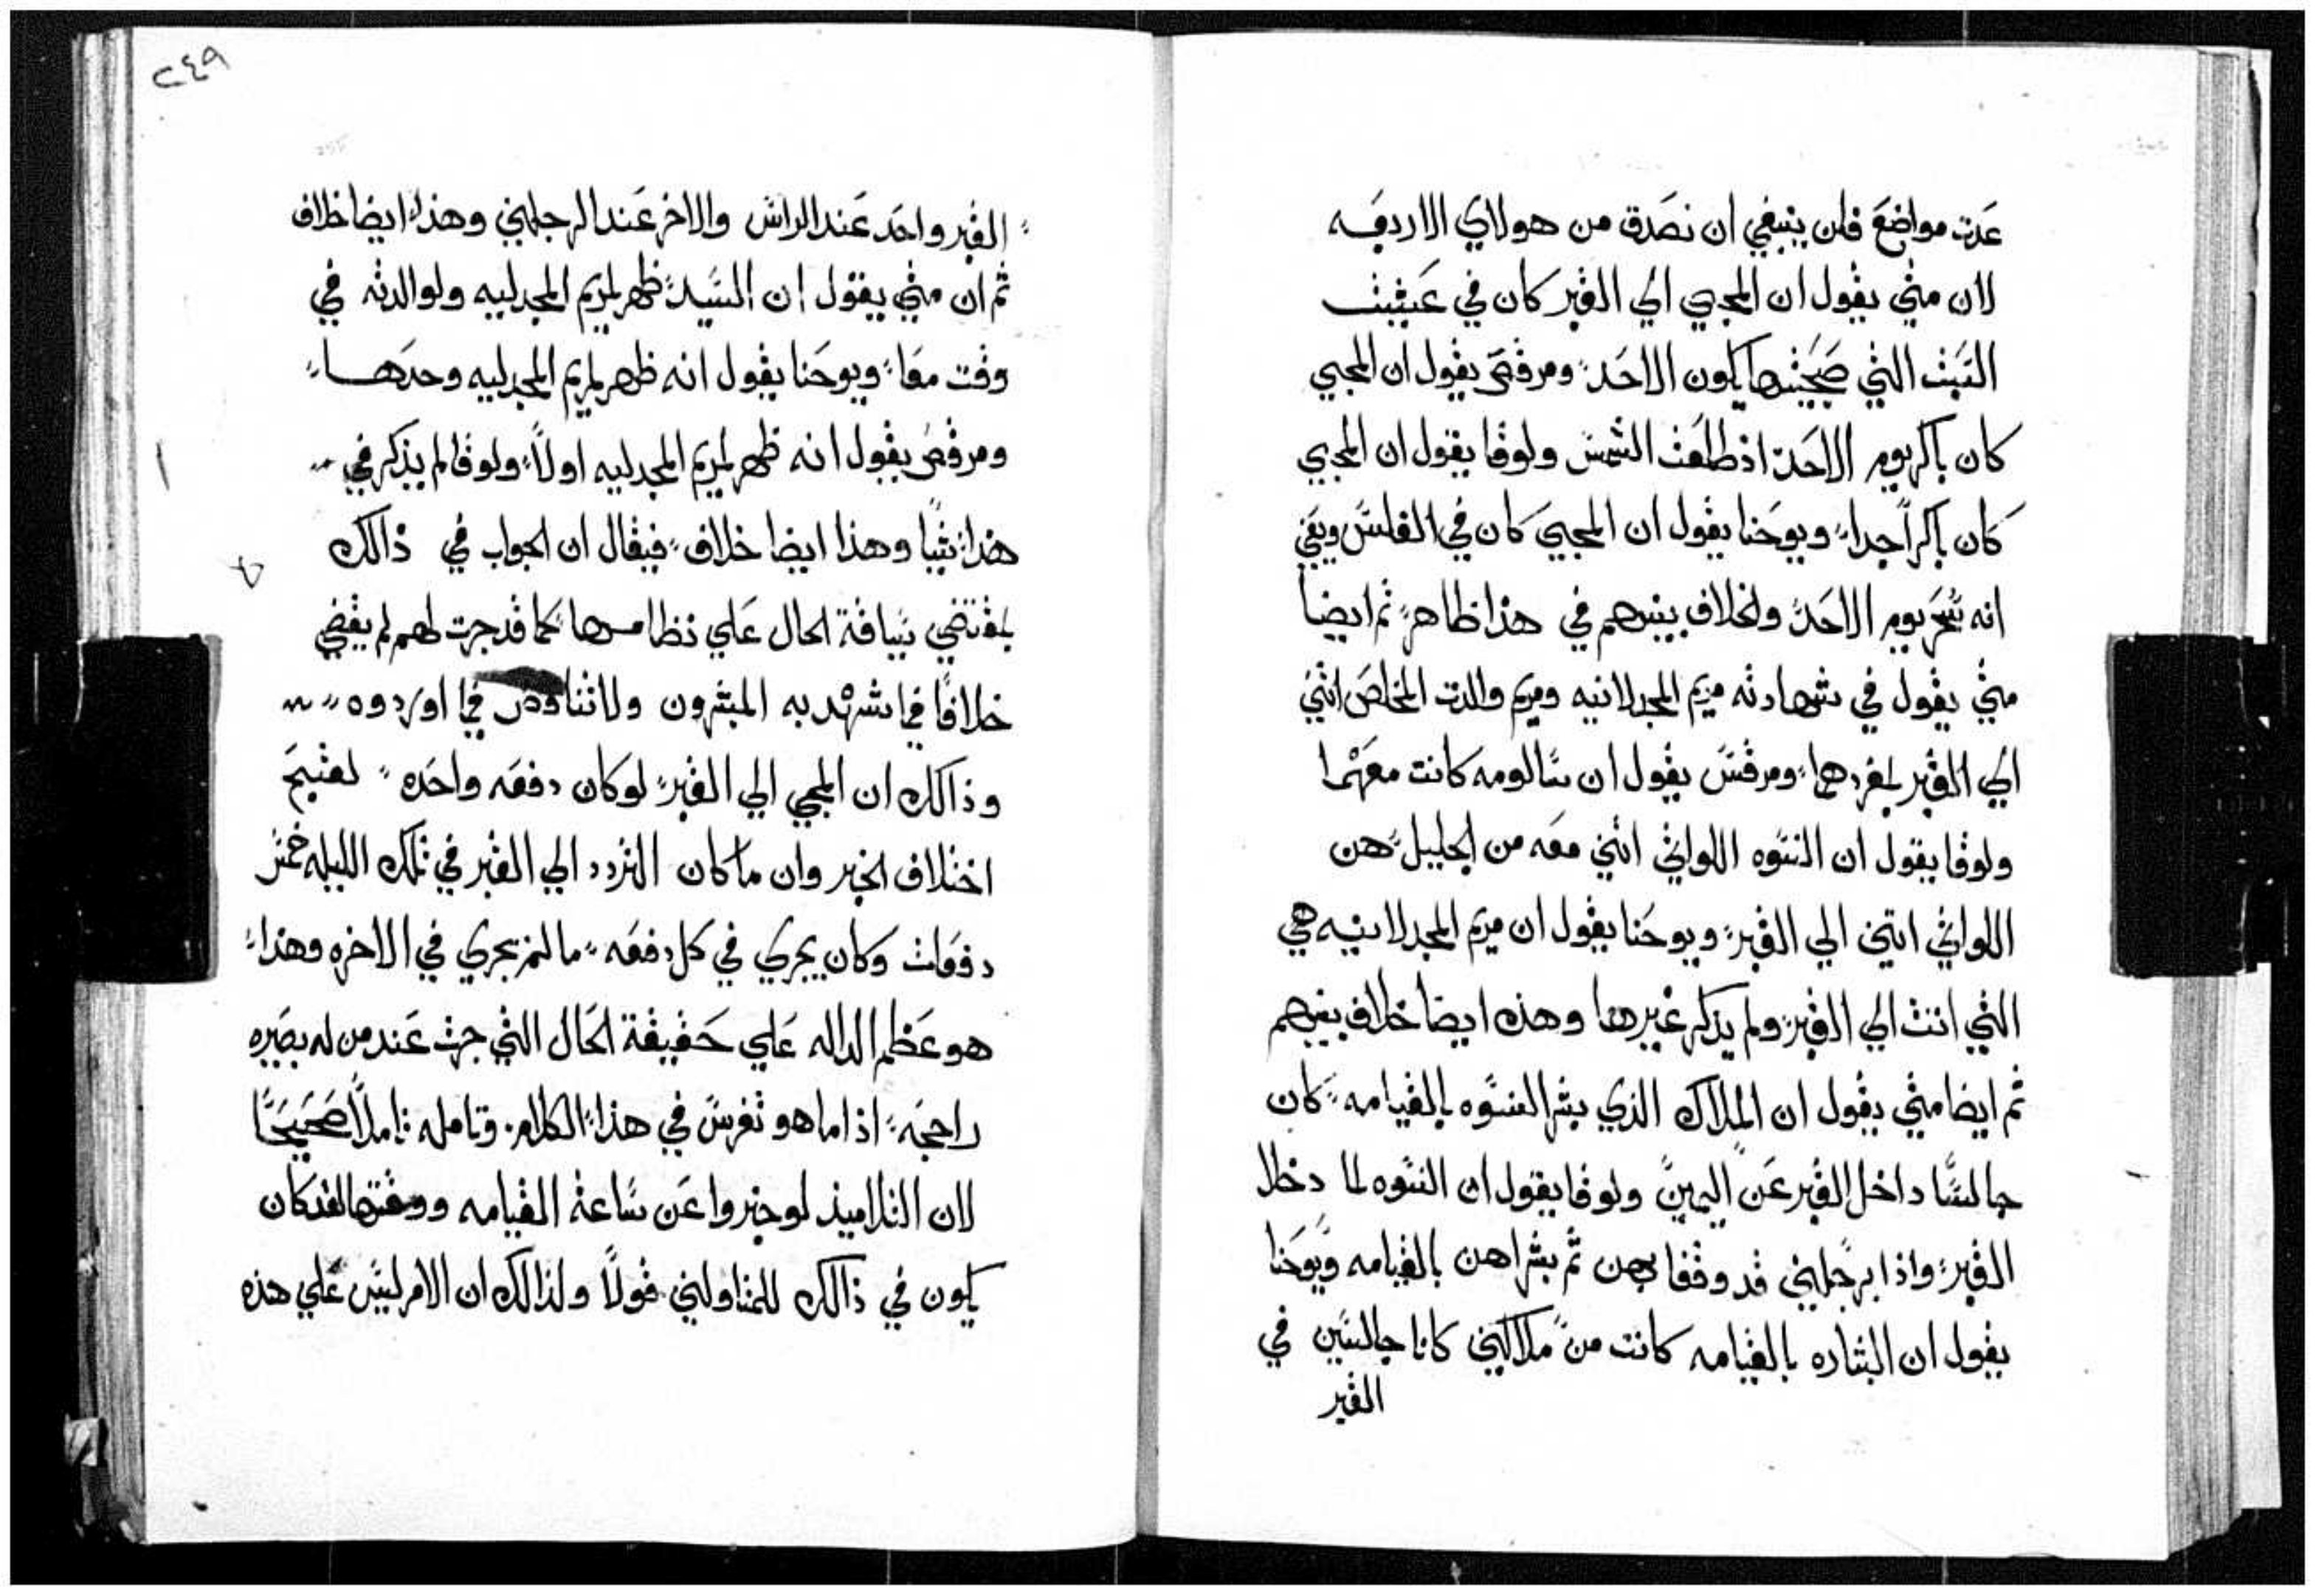 عدت مواضع فلمن ينبغي ان نصدق من هولاي الاربعه
لان متي يقول ان المجي الي القبر كان في عشية
السبت التي صبحتها يكون الاحد ومرقص يقول ان المجي
كان باكر يوم الاحد اذ طلعت الشمس ولوقا يقول ان المجي
كان باكراً جدا ويوحنا يقول ان المجي كان في الغلس ويعني
انه سحر يوم الاحد والخلاف بينهم في هذا ظاهر ثم ايضا
متي يقول في شهادته مريم المجدلانيه ومريم والدت المخلص اتتي
الي القبر بمفردهما ومرقس يقول ان سالومه كانت معهما
ولوقا يقول ان النسوه اللواتي اتين معه من الجليل هن
اللواتي اتين الي القبر ويوحنا يقول ان مريم المجدلانيه هي
التي اتت الي القبر ولم يذكر غيرها وهذه ايضا خلاف بينهم
ثم ايضا متي يقول ان الملاك الذي بشر النسوه بالقيامه كان
جالسا داخل القبر عن اليمين ولوقا يقول ان النسوه لما دخلا
القبر واذا برجلين قد وقفا بهن ثم بشراهن بالقيامه ويوحنا
يقول ان البشاره بالقيامه كانت من ملاكين كانا جالسين في
القبر
٢٤٩
القبر واحد عند الراس والاخر عند الرجلين وهذا ايضا خلاف
ثم ان متي يقول ان السيد ظهر لمريم المجدليه ولوالدته في
وقت معا ويوحنا يقول انه ظهر لمريم المجدليه وحدها
ومرقص يقول انه ظهر لمريم المجدليه اولاً ولوقا لم يذكر في
هذا شيا وهذا ايضا خلاف فيقال ان الجواب في ذالك
بمقتضي سياقة الحال علي نظامها كما قد جرت لهم لم يقضي
خلافا فيما شهد به المبشرون ولا تناقض فيما اوردوه
وذالك ان المجي الي القبر لو كان دفعه واحده لقبح
اختلاف الخبر وان ما كان التردد الي القبر في تلك الليله خمس
دفعات وكان يجري في كل دفعه ما لم يجري في الاخره وهذا
هو عظم الداله علي حقيقة الحال التي جرت عند من له بصيره
راجحه اذا ما هو تفرس في هذا الكلام وتامله تاملاً صحيحًا
لان التلاميذ لو خبروا عن ساعة القيامه ووقتها لقد كان
يكون في ذالك للمتاولين قولاً ولذالك ان الامر ليس علي هذه